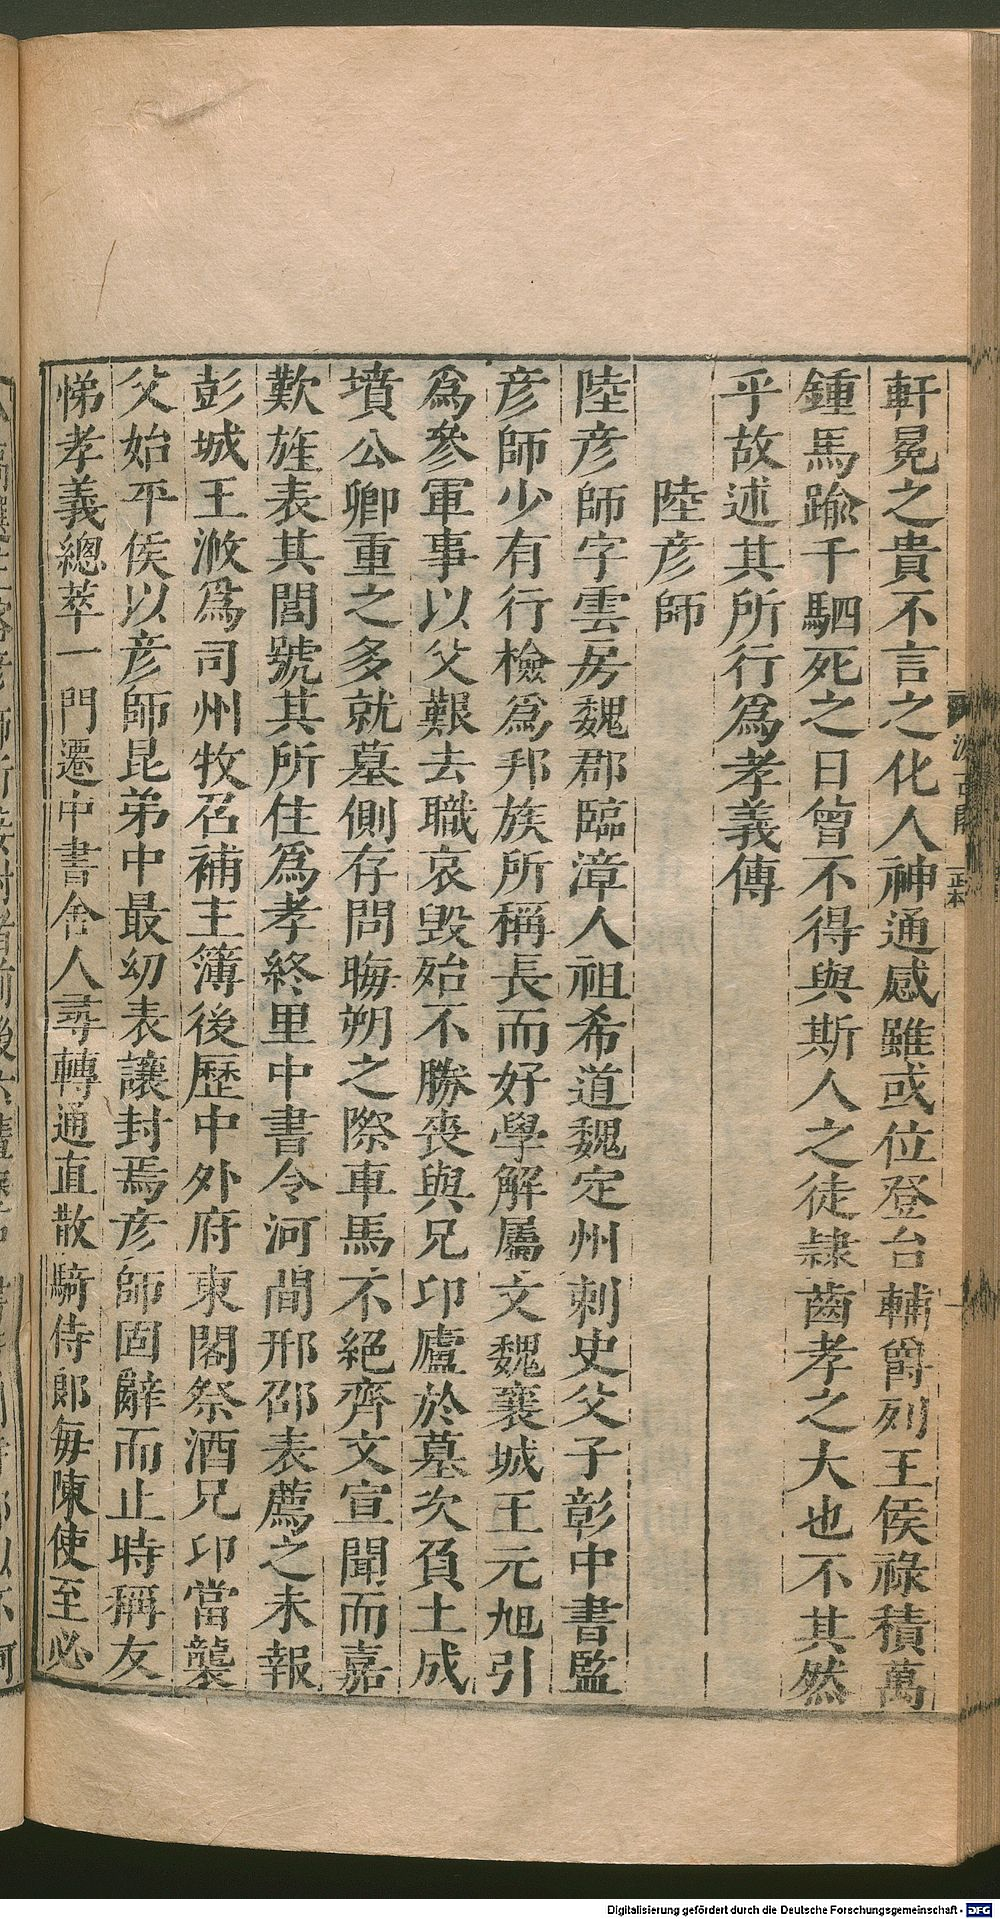 軒冕之貴不言之化人神通感雖或位登台輔爵列王侯祿積萬
鍾馬踰千駟死之日曾不得與斯人之徒隸齒孝之大也不其然
乎故述其所行爲孝義傳
陸彦師
陸彦師字雲房魏郡臨漳人祖希道魏定州刺史父子彰中書監
彦師少有行檢爲邦族所稱長而好學解屬文魏襄城王元旭引
爲參軍事以父艱去職哀毁殆不勝喪與兄卬廬於墓次負土成
墳公卿重之多就墓側存問晦朔之際車馬不絕齊文宣聞而嘉
歎旌表其閭號其所住爲孝終里中書令河間邢邵表薦之未報
彭城王浟爲司州牧召補主簿後歷中外府東閤祭酒兄卬當襲
父始平侯以彦師昆弟中最幼表讓封焉彦師固辭而止時稱友
悌孝義總萃一門遷中書舍人尋轉通直散騎侍郎每陳使至必
正本
Digitalisierung gefördert durch die Deutsche Forschungsgemeinschaft - DFG